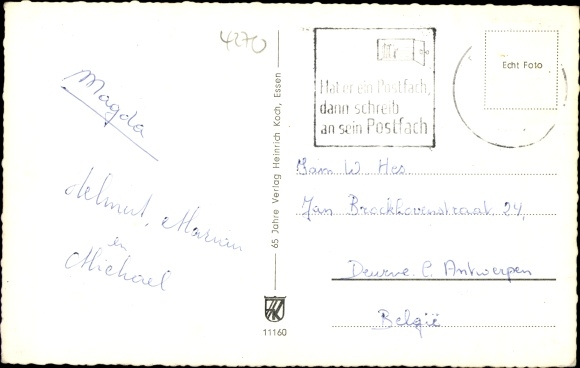 4270
Magda
Helmut, Marian
en
Michael
65 Jahre Verlag Heinrich Koch, Essen
11160
Hat er ein Postfach,
dann schreib
an sein Postfach
Echt Foto
Fam W. Hes
Jan Brockhovenstraat 24,
Deurne C. Antwerpen
België